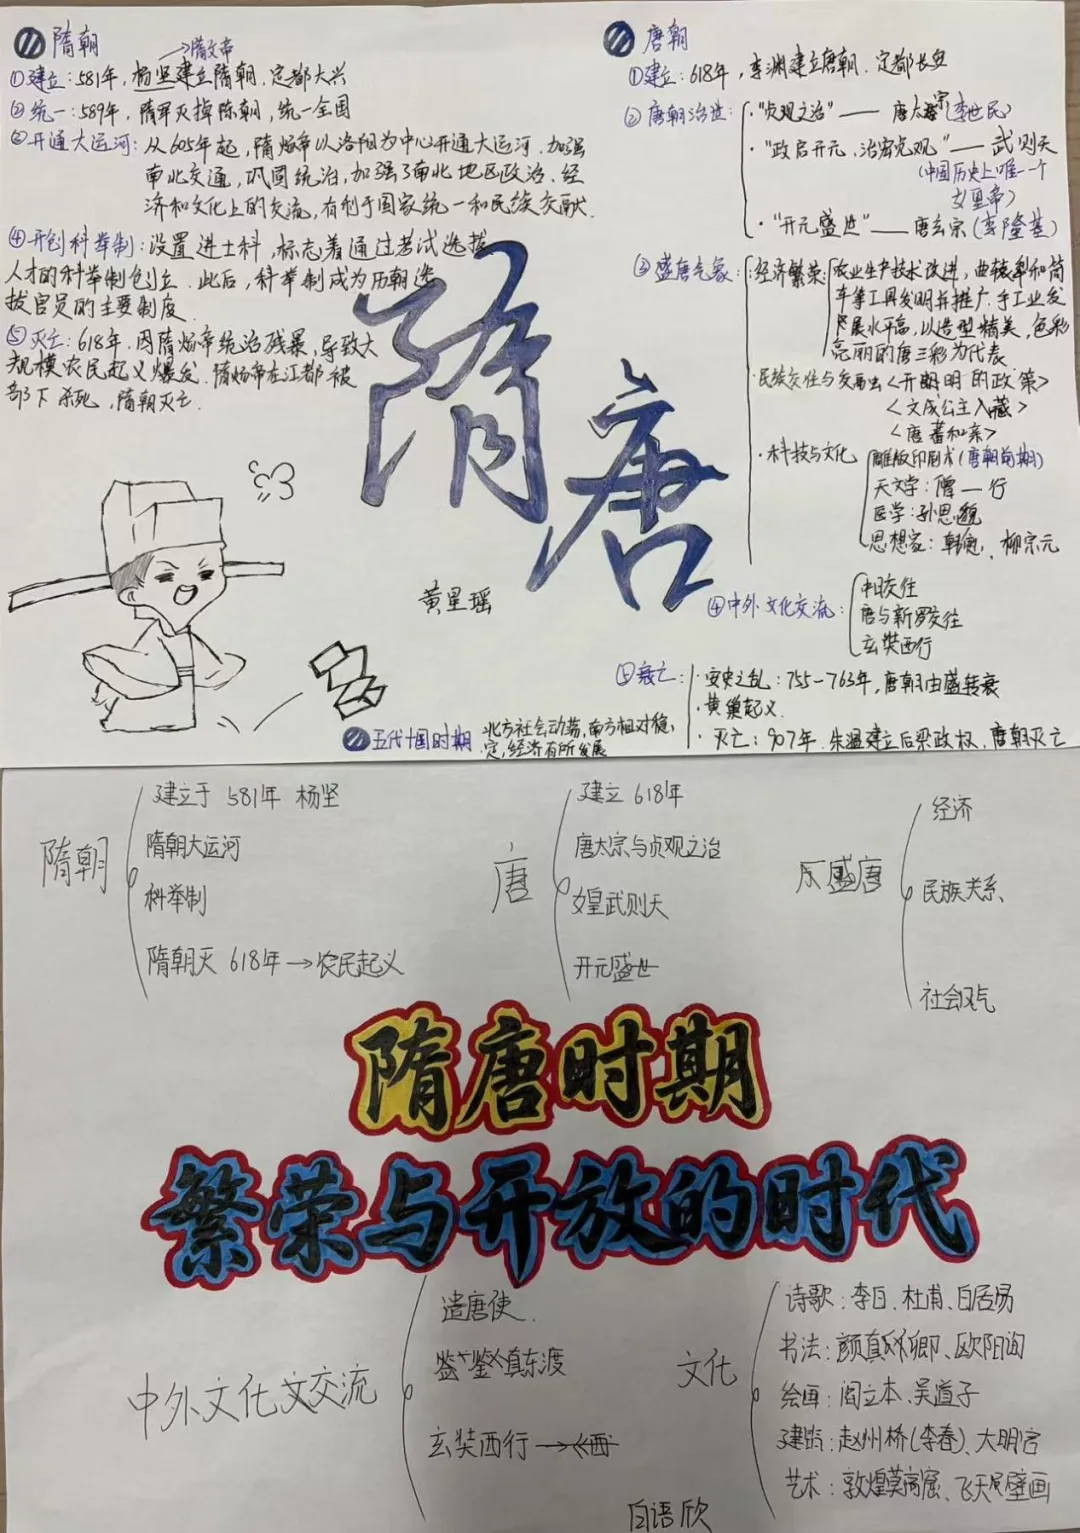 隋朝
→隋文帝
①建立：581年，杨坚建立隋朝．定都大兴
②统一：589年，隋军灭掉陈朝，统一全国
③开通大运河：从605年起，隋炀帝以洛阳为中心开通大运河．加强
南北交通，巩固统治，加强了南北地区政治、经
济和文化上的交流，有利于国家统一和民族交融．
④开创科举制：设置进士科，标志着通过考试选拔
人才的科举制创立．此后，科举制成为历朝选
拔官员的主要制度
⑤灭亡：618年．因隋炀帝统治残暴，导致大
规模农民起义爆发．隋炀帝在江都被
部下杀死，隋朝灭亡．
隋唐
黄星瑶
唐朝
①建立：618年，李渊建立唐朝．定都长安
②唐朝治世：
·“贞观之治”——唐太宗(李世民)
·“政启开元、治宏贞观”——武则天
(中国历史上唯一个
女皇帝)
·“开元盛世”——唐玄宗(李隆基)
③盛唐气象：
经济繁荣：农业生产技术改进，曲辕犁和筒
车等工具发明并推广．手工业发
展水平高，以造型精美，色彩
亮丽的唐三彩为代表
·民族交往与交融<开明的政策>
<文成公主入藏>
<唐蕃和亲>
·科技与文化
雕版印刷术(唐朝前期)
天文学：僧一行
医学：孙思邈
思想家：韩愈、柳宗元
④中外文化交流：
中日交往
唐与新罗交往
玄奘西行
⑤衰亡：
·安史之乱：755-763年，唐朝由盛转衰
·黄巢起义．
·灭亡：907年．朱温建立后梁政权，唐朝灭亡
五代十国时期
北方社会动荡，南方相对稳
定，经济有所发展
隋朝
建立于 581年 杨坚
隋朝大运河
科举制
隋朝灭 618年→农民起义
唐
建立 618年
唐太宗与贞观之治
女皇武则天
开元盛世
盛唐
经济
民族关系、
社会风气
隋唐时期
繁荣与开放的时代
中外文化交流
遣唐使．
鉴真东渡
玄奘西行→
文化
诗歌：李白、杜甫、白居易
书法：颜真卿、欧阳询
绘画：阎立本、吴道子
建筑：赵州桥(李春)、大明宫
艺术：敦煌莫高窟、飞天壁画
白语欣